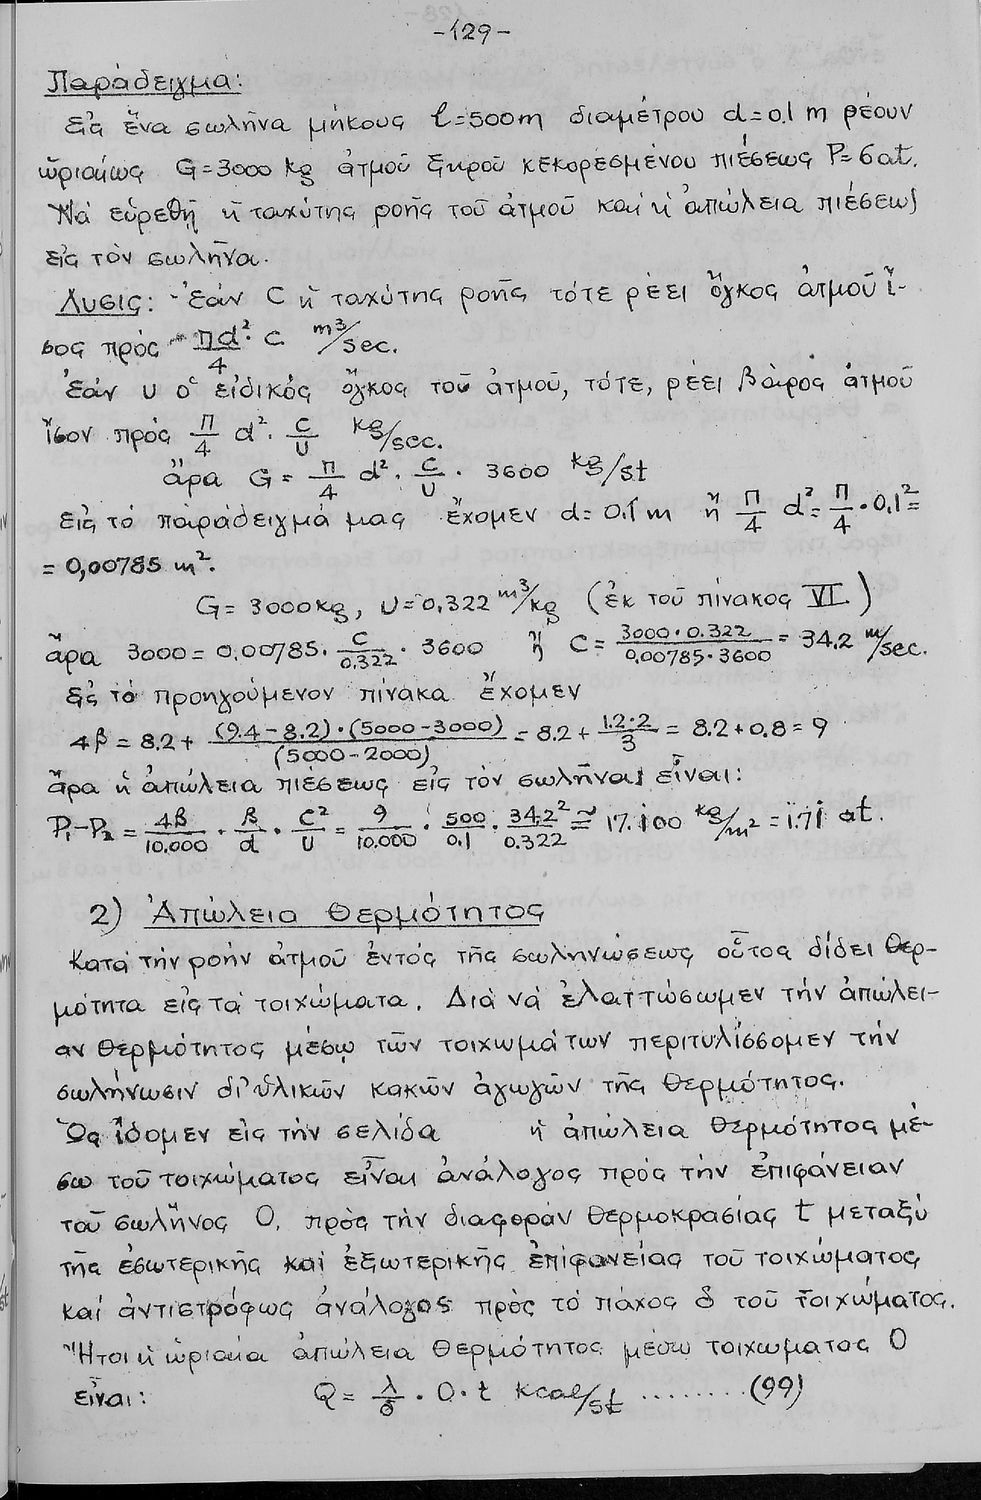 -129-
Παράδειγμα:
Εἰς ἕνα σωλῆνα μήκους l=500m διαμέτρου d=0.1 m ρέουν
ὡριαίως G=3000 kg ἀτμοῦ ξηροῦ κεκορεσμένου πιέσεως P=6at.
Νά εὑρεθῇ ἡ ταχύτης ροῆς τοῦ ἀτμοῦ καί ἡ ἀπώλεια πιέσεως
εἰς τόν σωλῆνα.
Λυσις: Ἐάν C ἡ ταχύτης ροῆς τότε ρέει ὄγκος ἀτμοῦ ἴ-
σος πρός Πd²/4 · C m³/sec.
Ἐάν υ ὁ εἰδικός ὄγκος τοῦ ἀτμοῦ, τότε, ρέει βάρος ἀτμοῦ
ἴσον πρός Π/4 d² · C/υ kg/sec.
ἄρα G = Π/4 d² · C/υ · 3600 kg/st
εἰς τό παράδειγμά μας ἔχομεν d=0.1m ἤ Π/4 d²= Π/4 · 0.1²=
= 0,00785 m².
G= 3000kg, υ=0.322 m³/kg (ἐκ τοῦ πίνακος VI.)
ἄρα 3000 = 0.00785 · C/0.322 · 3600 ἤ C = 3000·0.322/0.00785·3600 = 34.2 m/sec.
Εἰς τό προηγούμενον πίνακα ἔχομεν
4β = 8.2 + (9.4-8.2)·(5000-3000)/(5000-2000) = 8.2 + 1.2·2/3 = 8.2+0.8 = 9
ἄρα ἡ ἀπώλεια πιέσεως εἰς τόν σωλῆνα εἶναι:
P₁-P₂ = 4β/10.000 · β/d · C²/υ = 9/10.000 · 500/0.1 · 34.2²/0.322 ≅ 17.100 kg/m² = 1.71 at.
2) Ἀπώλεια Θερμότητος
Κατά τήν ροήν ἀτμοῦ ἐντός τῆς σωληνώσεως οὗτος δίδει θερ-
μότητα εἰς τά τοιχώματα. Διά νά ἐλαττώσωμεν τήν ἀπώλει-
αν θερμότητος μέσῳ τῶν τοιχωμάτων περιτυλίσσομεν τήν
σωλήνωσιν δι' ὑλικῶν κακῶν ἀγωγῶν τῆς θερμότητος.
Ὡς ἴδομεν εἰς τήν σελίδα ἡ ἀπώλεια θερμότητος μέ-
σω τοῦ τοιχώματος εἶναι ἀνάλογος πρός τήν ἐπιφάνειαν
τοῦ σωλῆνος O, πρός τήν διαφοράν θερμοκρασίας t μεταξύ
τῆς ἐσωτερικῆς καί ἐξωτερικῆς ἐπιφανείας τοῦ τοιχώματος
καί ἀντιστρόφως ἀνάλογος πρός τό πάχος δ τοῦ τοιχώματος.
Ἤτοι ἡ ὡριαία ἀπώλεια θερμότητος μέσω τοιχωματος O
εἶναι: Q = λ/δ · O · t kcal/st ........(99)